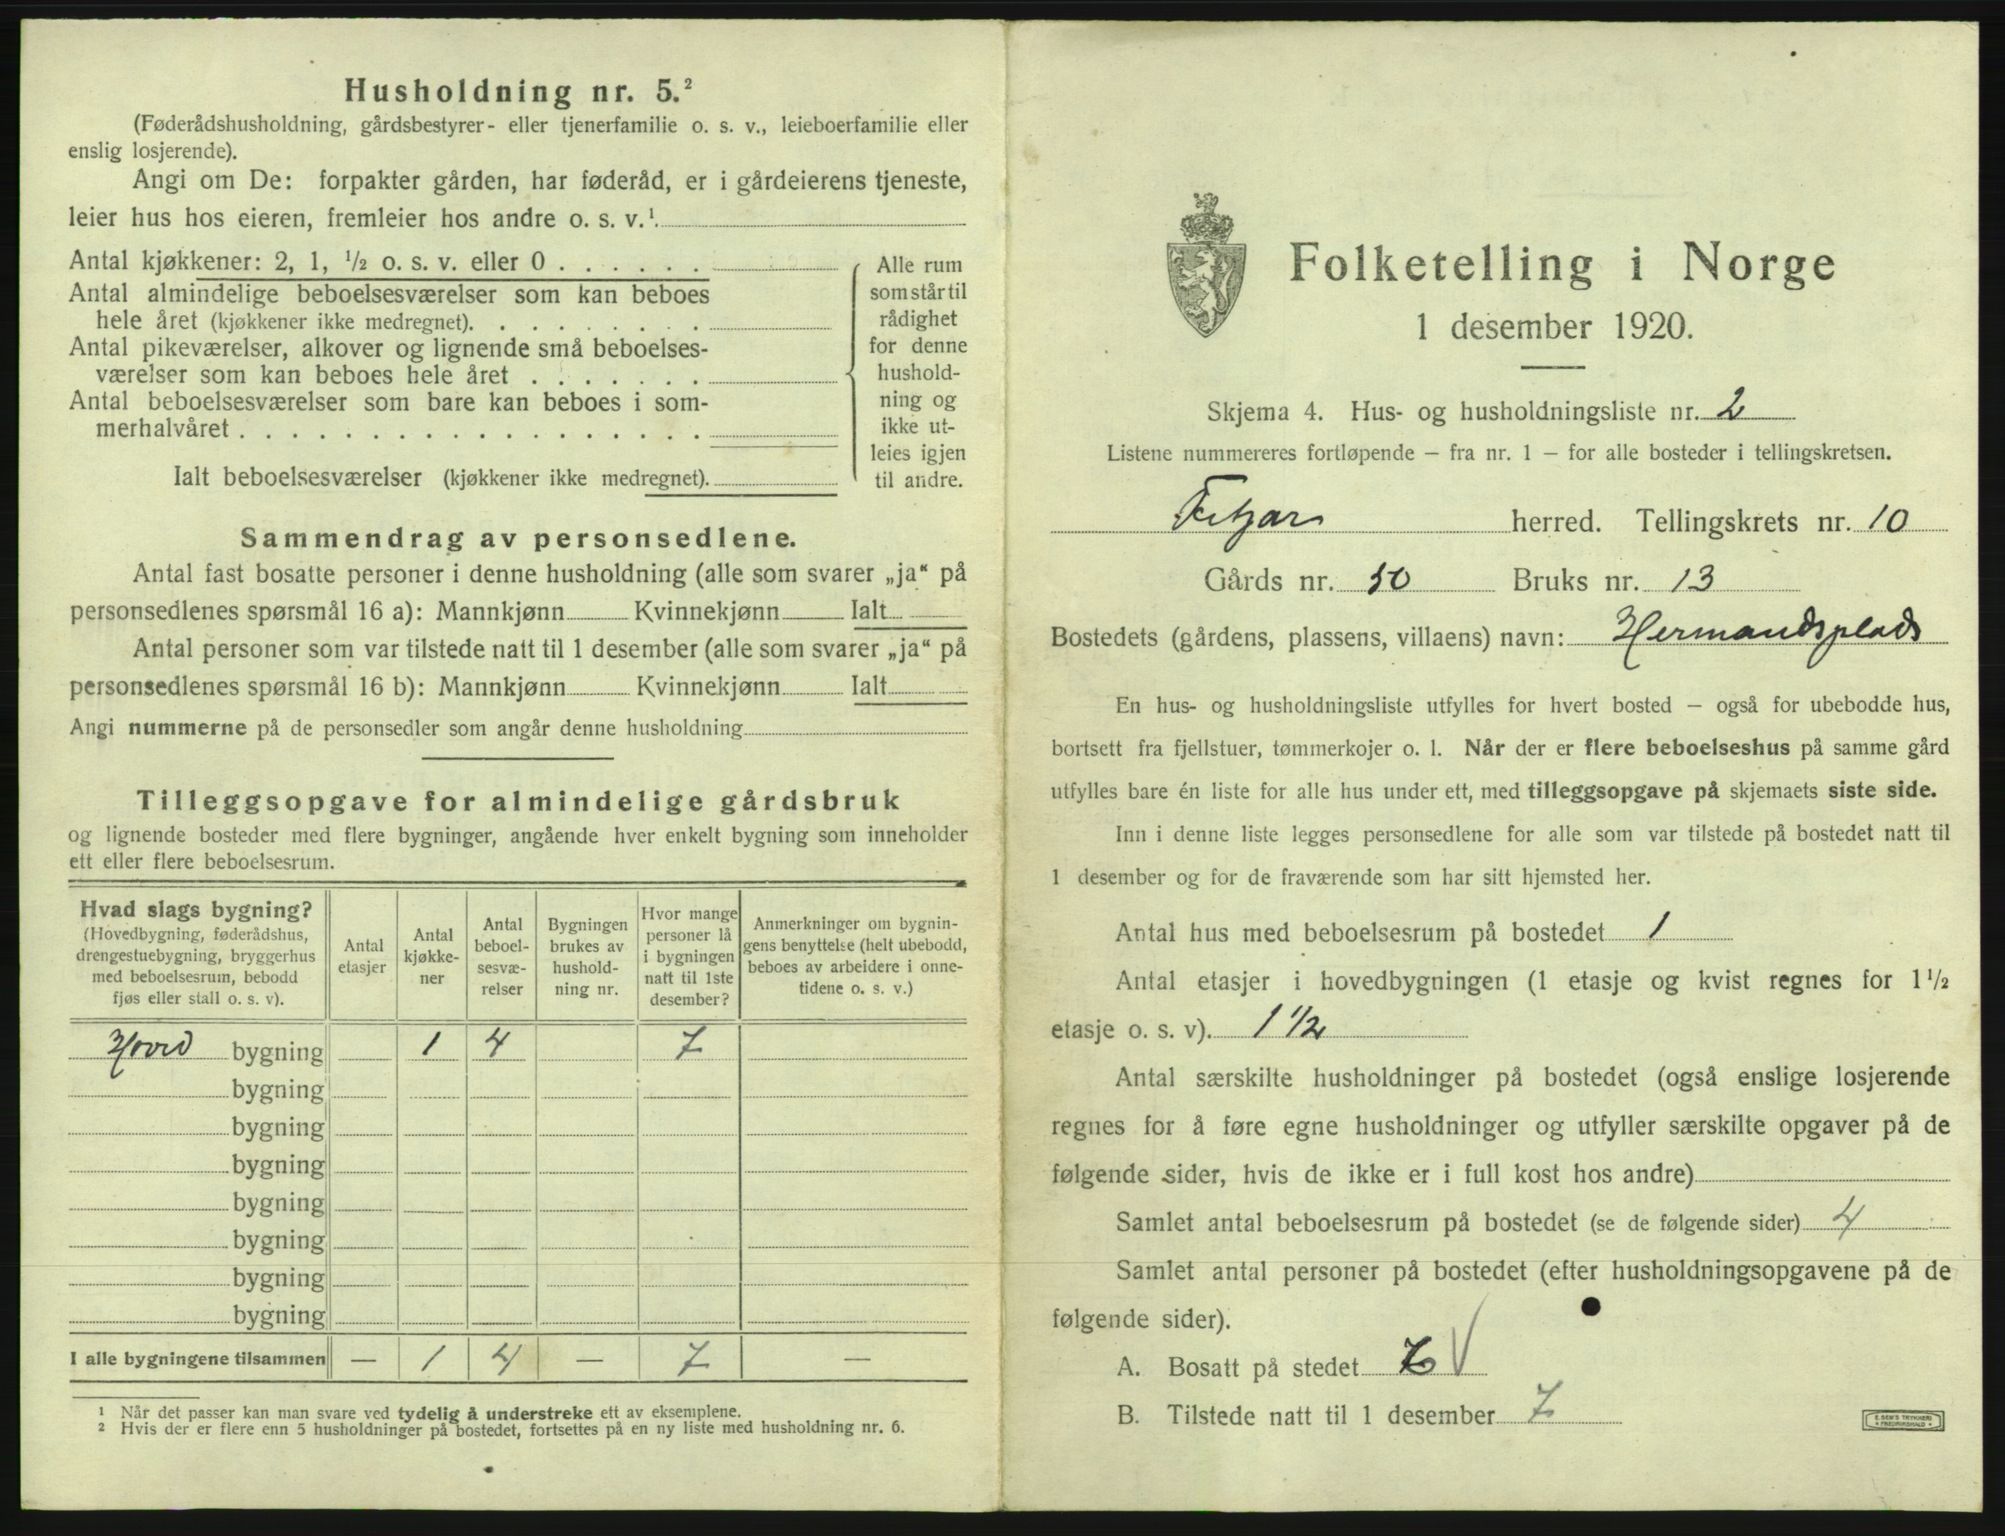 Husholdning nr. 5.²
(Føderådshusholdning, gårdsbestyrer- eller tjenerfamilie o. s. v., leieboerfamilie eller
enslig losjerende).
Angi om De: forpakter gården, har føderåd, er i gårdeierens tjeneste,
leier hus hos eieren, fremleier hos andre o. s. v.¹
Antal kjøkkener: 2, 1, ½ o. s. v. eller 0
Antal almindelige beboelsesværelser som kan beboes
hele året (kjøkkener ikke medregnet).
Antal pikeværelser, alkover og lignende små beboelses-
værelser som kan beboes hele året
Antal beboelsesværelser som bare kan beboes i som-
merhalvåret
Ialt beboelsesværelser (kjøkkener ikke medregnet).
Alle rum
som står til
rådighet
for denne
hushold-
ning og
ikke ut-
leies igjen
til andre.
Sammendrag av personsedlene.
Antal fast bosatte personer i denne husholdning (alle som svarer „ja“ på
personsedlenes spørsmål 16 a): Mannkjønn Kvinnekjønn Ialt
Antal personer som var tilstede natt til 1 desember (alle som svarer „ja“ på
personsedlenes spørsmål 16 b): Mannkjønn Kvinnekjønn Ialt
Angi nummerne på de personsedler som angår denne husholdning
Tilleggsopgave for almindelige gårdsbruk
og lignende bosteder med flere bygninger, angående hver enkelt bygning som inneholder
ett eller flere beboelsesrum.
Hvad slags bygning?
(Hovedbygning, føderådshus,
drengestuebygning, bryggerhus
med beboelsesrum, bebodd
fjøs eller stall o. s. v).
Antal
etasjer
Antal
kjøkke-
ner
Antal
beboel-
sesvæ-
relser
Bygningen
brukes av
hushold-
ning nr.
Hvor mange
personer lå
i bygningen
natt til 1ste
desember?
Anmerkninger om bygnin-
gens benyttelse (helt ubebodd,
beboes av arbeidere i onne-
tidene o. s. v.)
Hovedbygning 1 4 7
bygning
bygning
bygning
bygning
bygning
bygning
bygning
I alle bygningene tilsammen — 1 4 — 7 —
¹ Når det passer kan man svare ved tydelig å understreke ett av eksemplene.
² Hvis der er flere enn 5 husholdninger på bostedet, fortsettes på en ny liste med husholdning nr. 6.
Folketelling i Norge
1 desember 1920.
Skjema 4. Hus- og husholdningsliste nr. 2
Listene nummereres fortløpende – fra nr. 1 – for alle bosteder i tellingskretsen.
Fitjar herred. Tellingskrets nr. 10
Gårds nr. 50 Bruks nr. 13
Bostedets (gårdens, plassens, villaens) navn: Hermandsplads
En hus- og husholdningsliste utfylles for hvert bosted – også for ubebodde hus,
bortsett fra fjellstuer, tømmerkojer o. l. Når der er flere beboelseshus på samme gård
utfylles bare én liste for alle hus under ett, med tilleggsopgave på skjemaets siste side.
Inn i denne liste legges personsedlene for alle som var tilstede på bostedet natt til
1 desember og for de fraværende som har sitt hjemsted her.
Antal hus med beboelsesrum på bostedet 1
Antal etasjer i hovedbygningen (1 etasje og kvist regnes for 1½
etasje o. s. v). 1 ½
Antal særskilte husholdninger på bostedet (også enslige losjerende
regnes for å føre egne husholdninger og utfyller særskilte opgaver på de
følgende sider, hvis de ikke er i full kost hos andre)
Samlet antal beboelsesrum på bostedet (se de følgende sider) 4
Samlet antal personer på bostedet (efter husholdningsopgavene på de
følgende sider).
A. Bosatt på stedet 7
B. Tilstede natt til 1 desember 7
E. SEM'S TRYKKERI
FREDRIKSHALD